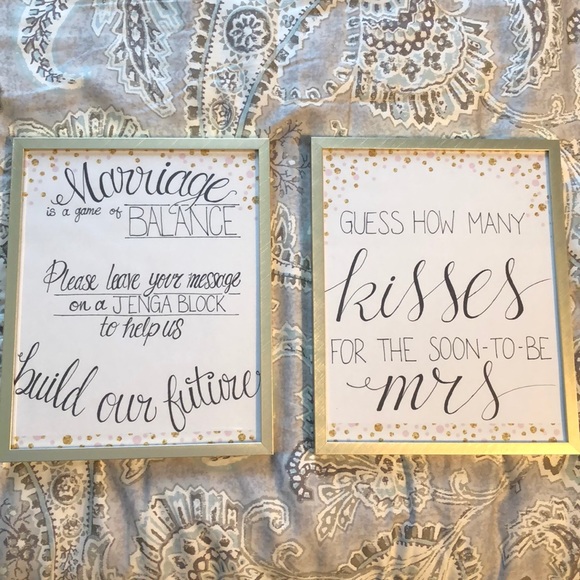 Marriage
is a game of BALANCE
Please leave your message
on a JENGA BLOCK
to help us
build our future
GUESS HOW MANY
kisses
FOR THE SOON-TO-BE
mrs